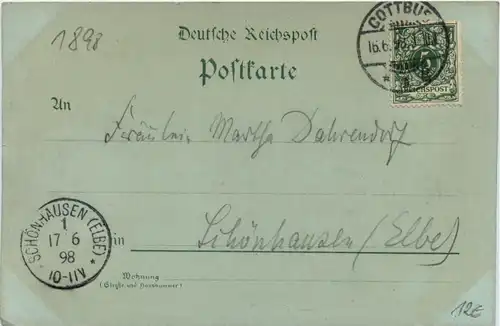 1898
Deutsche Reichspost
Postkarte
COTTBUS
16.6.98
REICHSPOST
An
Fräulein Martha Dahrendorf
SCHÖNHAUSEN (ELBE)
1
17 6
98
10-11V
in Schönhausen (Elbe)
Wohnung
(Straße und Hausnummer)
12E